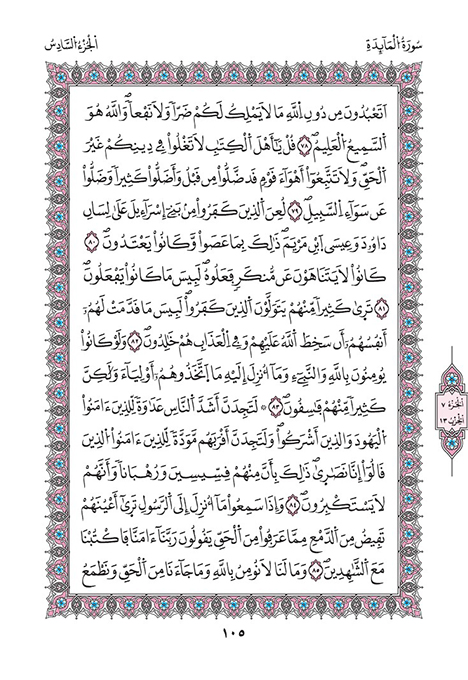 سُورَةُ الْمَآئِدَةِ
الْجُزْءُ السَّادِسُ
اَتَعْبُدُونَ مِن دُونِ اِللَّهِ مَا لَا يَمْلِكُ لَكُمْ ضَرّاً وَلَا نَفْعاً وَاللَّهُ هُوَ
اَلسَّمِيعُ اُلْعَلِيمُ ٧٨ قُلْ يَٰٓأَهْلَ اَلْكِتَٰبِ لَا تَغْلُواْ فِي دِينِكُمْ غَيْرَ
اَلْحَقِّ وَلَا تَتَّبِعُوٓاْ أَهْوَآءَ قَوْمٖ قَد ضَّلُّواْ مِن قَبْلُ وَأَضَلُّواْ كَثِيراً وَضَلُّواْ
عَن سَوَآءِ اِلسَّبِيلِ ٧٩ لُعِنَ اَلذِينَ كَفَرُواْ مِنۢ بَنِےٓ إِسْرَآءِيلَ عَلَىٰ لِسَانِ
دَاوُۥدَ وَعِيسَى اَبْنِ مَرْيَمَ ذَٰلِكَ بِمَا عَصَواْ وَّكَانُواْ يَعْتَدُونَ ٨٠
كَانُواْ لَا يَتَنَاهَوْنَ عَن مُّنكَرٖ فَعَلُوهُ لَبِيسَ مَا كَانُواْ يَفْعَلُونَ
٨١ تَرَىٰ كَثِيراً مِّنْهُمْ يَتَوَلَّوْنَ اَلذِينَ كَفَرُواْ لَبِيسَ مَا قَدَّمَتْ لَهُمُۥٓ
أَنفُسُهُمُۥٓ أَن سَخِطَ اَللَّهُ عَلَيْهِمْ وَفِي اِلْعَذَابِ هُمْ خَٰلِدُونَ ٨٢ وَلَوْ كَانُواْ
يُومِنُونَ بِاللَّهِ وَالنَّبِےٓءِ وَمَآ أُنزِلَ إِلَيْهِ مَا اَتَّخَذُوهُمُۥٓ أَوْلِيَآءَ وَلَٰكِنَّ
كَثِيراً مِّنْهُمْ فَٰسِقُونَ ٨٣ لَتَجِدَنَّ أَشَدَّ اَلنَّاسِ عَدَٰوَةً لِّلذِينَ ءَامَنُواْ
اُلْيَهُودَ وَالذِينَ أَشْرَكُواْ وَلَتَجِدَنَّ أَقْرَبَهُم مَّوَدَّةً لِّلذِينَ ءَامَنُواْ اُلذِينَ
قَالُوٓاْ إِنَّا نَصَٰرَىٰ ذَٰلِكَ بِأَنَّ مِنْهُمْ قِسِّيسِينَ وَرُهْبَاناً وَأَنَّهُمْ
لَا يَسْتَكْبِرُونَ ٨٤ وَإِذَا سَمِعُواْ مَآ أُنزِلَ إِلَى اَلرَّسُولِ تَرَىٰٓ أَعْيُنَهُمْ
تَفِيضُ مِنَ اَلدَّمْعِ مِمَّا عَرَفُواْ مِنَ اَلْحَقِّ يَقُولُونَ رَبَّنَآ ءَامَنَّا فَاكْتُبْنَا
مَعَ اَلشَّٰهِدِينَ ٨٥ وَمَا لَنَا لَا نُومِنُ بِاللَّهِ وَمَا جَآءَنَا مِنَ اَلْحَقِّ وَنَطْمَعُ
الجزء ٧
الحزب ١٣
١٠٥